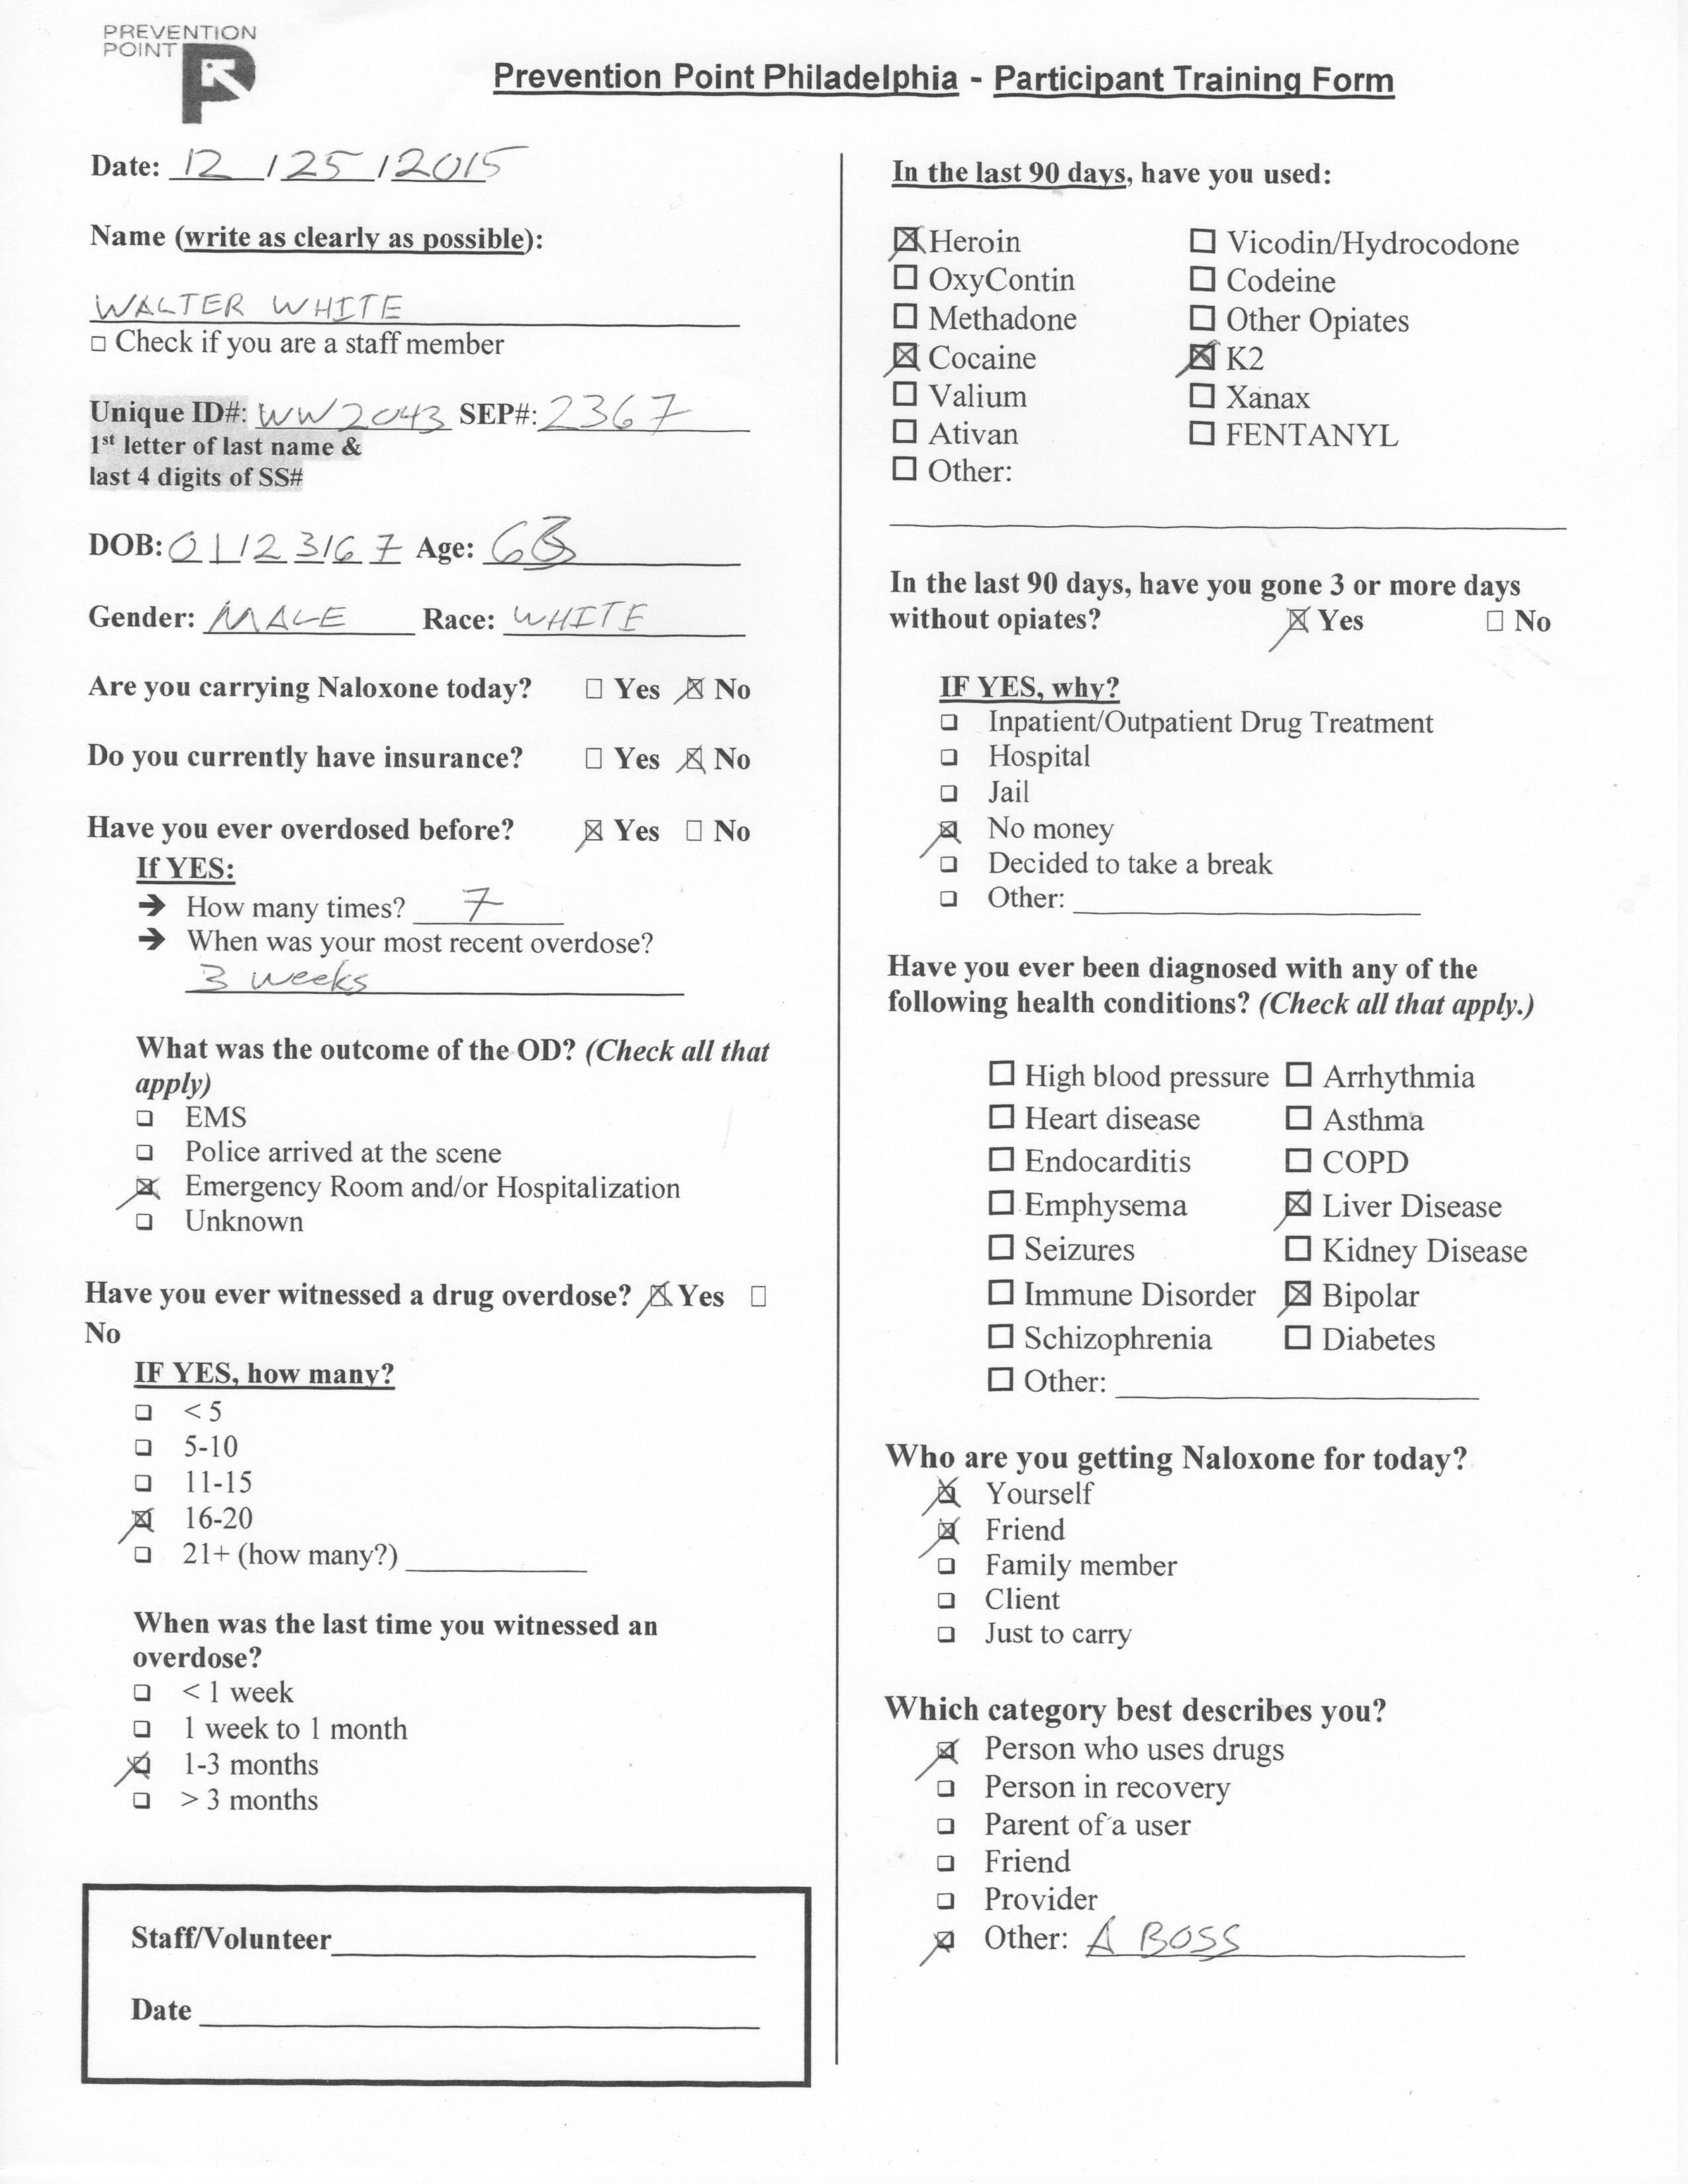 PREVENTION
POINT
Prevention Point Philadelphia - Participant Training Form
Date: 12 / 25 / 2015
Name (write as clearly as possible):
WALTER WHITE
□ Check if you are a staff member
Unique ID#: WW2043 SEP#: 2367
1st letter of last name &
last 4 digits of SS#
DOB: 01/23/67 Age:
Gender: MALE Race: WHITE
Are you carrying Naloxone today? □ Yes ☒ No
Do you currently have insurance? □ Yes ☒ No
Have you ever overdosed before? ☒ Yes □ No
If YES:
➔ How many times? 7
➔ When was your most recent overdose?
3 weeks
What was the outcome of the OD? (Check all that
apply)
□ EMS
□ Police arrived at the scene
☒ Emergency Room and/or Hospitalization
□ Unknown
Have you ever witnessed a drug overdose? ☒ Yes □
No
IF YES, how many?
□ < 5
□ 5-10
□ 11-15
☒ 16-20
□ 21+ (how many?)
When was the last time you witnessed an
overdose?
□ < 1 week
□ 1 week to 1 month
☒ 1-3 months
□ > 3 months
Staff/Volunteer
Date
In the last 90 days, have you used:
☒ Heroin □ Vicodin/Hydrocodone
□ OxyContin □ Codeine
□ Methadone □ Other Opiates
☒ Cocaine ☒ K2
□ Valium □ Xanax
□ Ativan □ FENTANYL
□ Other:
In the last 90 days, have you gone 3 or more days
without opiates? ☒ Yes □ No
IF YES, why?
□ Inpatient/Outpatient Drug Treatment
□ Hospital
□ Jail
☒ No money
□ Decided to take a break
□ Other:
Have you ever been diagnosed with any of the
following health conditions? (Check all that apply.)
□ High blood pressure □ Arrhythmia
□ Heart disease □ Asthma
□ Endocarditis □ COPD
□ Emphysema ☒ Liver Disease
□ Seizures □ Kidney Disease
□ Immune Disorder ☒ Bipolar
□ Schizophrenia □ Diabetes
□ Other:
Who are you getting Naloxone for today?
☒ Yourself
☒ Friend
□ Family member
□ Client
□ Just to carry
Which category best describes you?
☒ Person who uses drugs
□ Person in recovery
□ Parent of a user
□ Friend
□ Provider
☒ Other: A BOSS